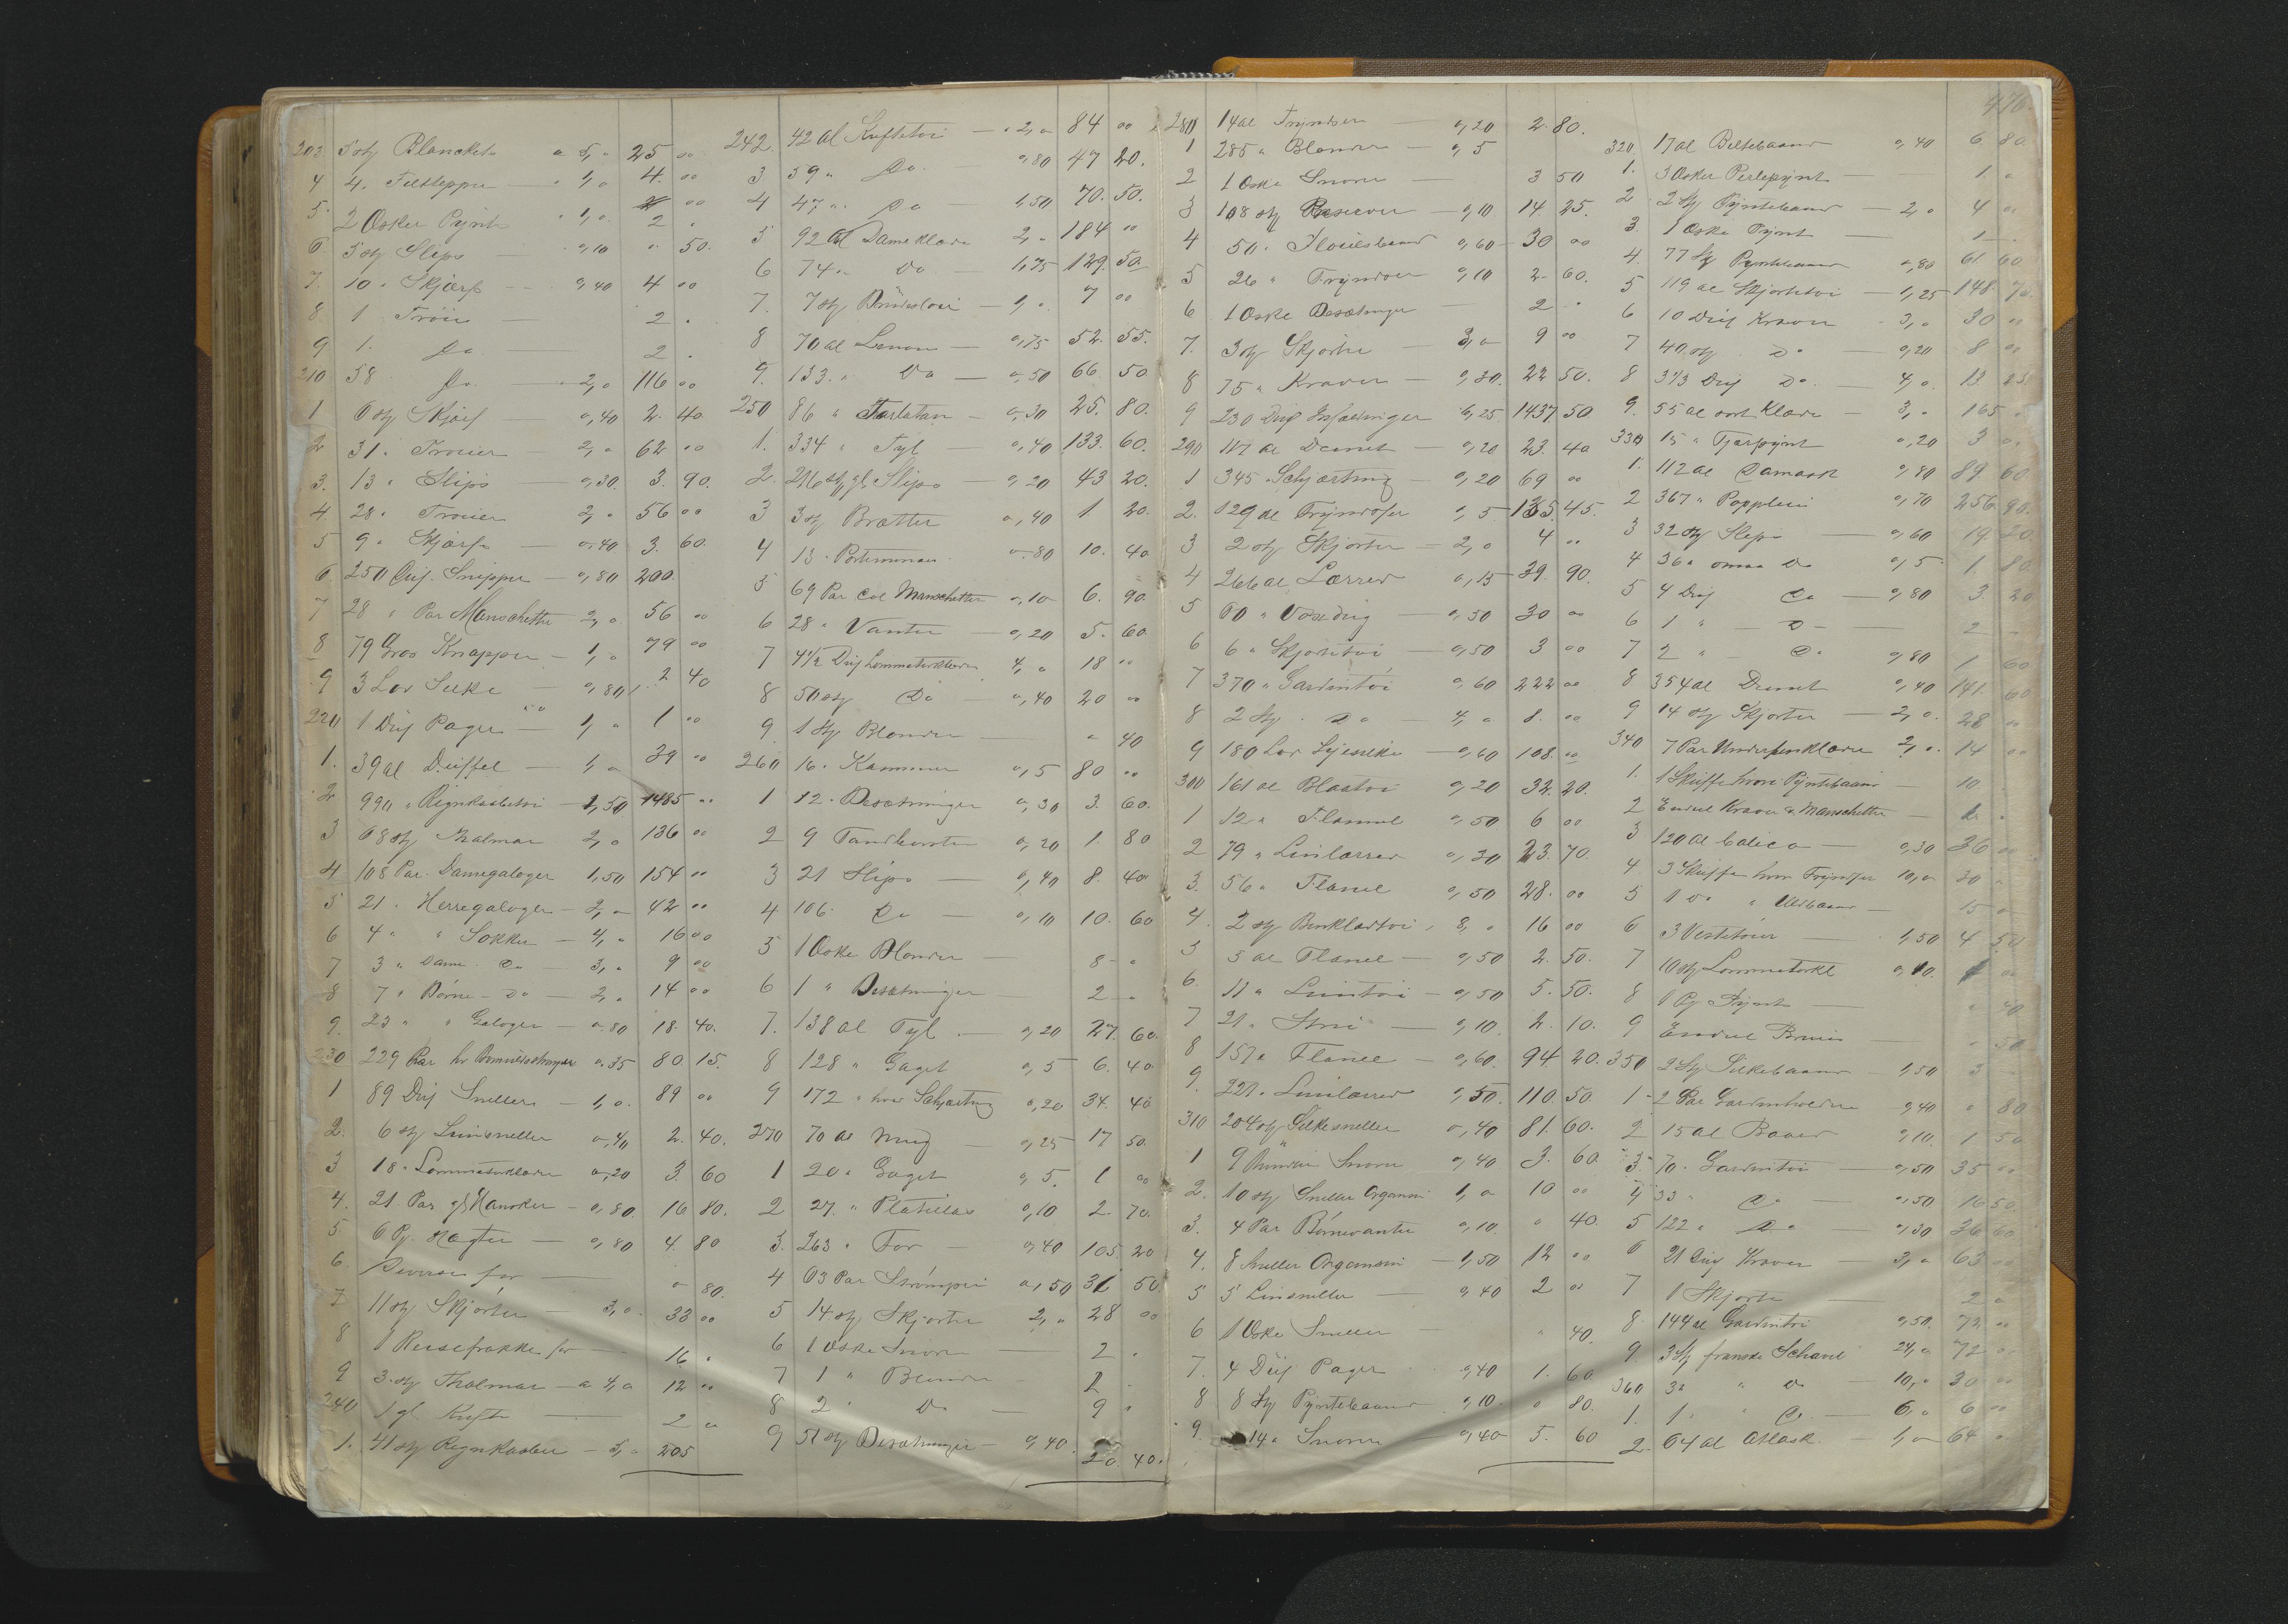 476.
203 5 stk Blanckets a 5,- 25 00
4 4. Filttepper - 1,0 4. 00
5 2 Æsker Pÿnt - 1,0. 2 .
6 5 stk Slips — 0,10 " 50.
7. 10 " Skjærf -- 0,40 4 00
8 1 Trøie — 2 .
9 1. Do. — 2 .
210 58 Do. — 2,0 116 00
1 6 stk Skjærf — 0,40 2. 40
2 31. Trøier — 2,0 62 00
3. 13 " Slips — 0,30. 3. 90.
4 28. Trøier 2,0 56 00
5 9 " Skjærf — 0,40 3. 60.
6. 250 Dus. Snipper — 0,80 200.
7 28 " Par Manschetter — 2,0 56 00
8 79 Gros Knapper — 1,0 79 00
9 3 Lod Silke — 0,80 2 40
220 1 Dus Pager — 1,0 1 00
1. 39 al Duffel — 1,0 39 00
2 990 " Regnkaabetøi — 1,50 1485 00
3 68 stk Thalmar 2,0 136 00
4 108 Par. Damegaloger 1,50 154 00
5 21 " Herregaloger — 2,0 42 00
6 4 " " Sokker — 4,0 16 00
7 3 " Dame- Do — 3,0 9 00
8 7 " Børne- Do — 2,0 14 00
9. 23 " " Galoger — 0,80 18. 40.
230 229 Par hv Bomuldsstrømper 0,35 80. 15.
1 89 Dus Sneller — 1,0. 89 00
2. 6 stk Linsneller 0,40 2. 40.
3 18. Lommetørklæder 0,20 3. 60
4. 21 Par gl Hansker — 0,80. 16 80.
5 6 Pj. Hægter — 0,80 4. 80
6. Diverse for — 0 80.
7 11 stk Skjorter — 3,0. 33 00
8 1 Reisefrakke for — 16 .
9 3. stk Thalmar — a 4,0 12 00
240 1 gl Kufte — 2 00
1. 41 stk Regnkaaber — 5,0 205
242. 42 al Kuftetøi — - 2,0 84 00
3 59 " Do. 0,80 47 20.
4 47 " Do — 1,50 70. 50.
5 92 al Dameklæde 2,0 184 00
6 74 " Do — 1,75 129. 50.
7. 7 stk Brudeslør — 1,0. 7 00
8 70 al Lenon — 0,75 52. 55.
9. 133. " Do — 0,50 66. 50
250 86 " Tarlatan — 0,30 25. 80.
1. 334 " Tyl — 0,40 133. 60.
2. 216 stk gl Slips — 0,20 43 20.
3 3 stk Bretter 0,40 1 20.
4 13. Portemonnai 0,80 10. 40
5 69 Par Col Manschetter — 0,10 6. 90.
6 28 " Vanter — 0,20 5. 60.
7 4 1/2 Dus Lommetørklæder 4,0 18 00
8 50 stk Do 0,40 20 00
9. 1 stk Blonder — " 40
260 16. Kammer 0,5 80 00
1 12. Besætninger 0,30 3. 60.
2 9 Tandbørster 0,20 1. 80
3 21 Slips — 0,40 8. 40
4 106. Do — 0,10 10. 60
5 1 Æske Blonder — 8 - 0
6 1 " Besætninger — 2 - 0
7. 138 al Tyl. — 0,20 27. 60.
8 128 " Gaget 0,5 6. 40
9 172 " hvid Schjærting 0,20 34. 40
270 70 al Mug — 0,25 17 50.
1 20 " Gaget 0,5. 1 00
2 27. " Platillas 0,10 2. 70.
3. 263 " For — 0,40 105. 20
4 63 Par Strømper 0,50 31 50
5 14 stk Skjorter 2,0 28 00
6 1 Æske Snore — 2 .
7 1 " Blonder — 2
8 2 " Do — 9 .
9 51 stk Besætninger — 0,40. 20. 40.
280 14 al Frÿndser — 0,20 2. 80.
1 285 " Blonder — 0,5
2 1 Æske Snore — 3 50
3 108 stk — 0,10 14. 25.
4 50. Fløielsbaand 0,60 30 00
5 26 " Frÿndser 0,10 2. 60.
6 1 Æske Besætninger — 2 .
7. 3 stk Skjorter — 3,0 9 00
8 75 " Kraver — 0,30. 22 50.
9 230 Dus Indfatninger 6,25 1437 50.
290 117 al Demet — 0,20 23. 40
1 345 " Schjærting — 0,20 69 00
2. 129 al Frÿndser 0,5 135. 45.
3 2 stk Skjorter — 2,0 4 00
4 266 al Lærred 0,15 39. 90.
5 60 " Voxdug — 0,50 30 00
6 6 " Skjortetøi — 0,50 3 00
7 370 " Gardintøi 0,60 222 00
8 2 stk . Do — 4,0 8. 00
9 180 Lod Sysilke — 0,60 108. 00
300 161 al Blaatøi 0,20 32. 20.
1 12 " Flannel 0,50 6 00
2 79 " Linlærred 0,30 23. 70.
3. 56 " Flanel 0,50 28. 00
4. 2 stk Benklædtøi , 8,0 16 00
5 5 al Flanel — 0,50 2. 50.
6. 11 " Lintøi — 0,50 5. 50.
7 21. Stri — 0,10. 2. 10.
8 157 " Flanel — 0,60. 94. 20.
9. 221. Linlærred 0,50. 110. 50
310 204 stk Silkesneller 0,40 81. 60.
1 9 Bundter Snore 0,40 3. 60.
2. 10 stk Sneller Organsin 1,0 10 00
3. 4 Par Børnevanter 0,10. " 40.
4. 8 Sneller Organsin — 1,50 12 00
5 5 Linsneller — 0,40 2 00
6 1 Æske Sneller — " 40.
7. 4 Dus Pager . 0,40 1. 60
8 8 stk Pyntebaand 0,10. 0 80.
9. 14 " Snore — 0,40 5. 60
320 17 al Beltebaand 0,40 6. 80.
1. 3 Æsker Perlepÿnt — 1 0
2 2 stk Pÿntebaand — 2,0 4 00
3. 1 Æske Pÿnt — 1 —
4. 77 stk Pyntebaand 0,80 61 60
5 119 al Skjortetøi — 1,25 148. 75.
6 10 Dus Kraver - 3,0 30 00
7 40 stk Do — 0,20 8 00
8 3 1/3 Dus Do. — 4,0. 13 25.
9. 55 al sort Klæde — 3,0 165 .
330 15 " Tjærpÿnt 0,20 3 00
1. 112 al Damask 0,80 89 60
2 367 " Popplin 0,70 256. 90.
3 32 stk Slips — 0,60 19. 20.
4 36 " smaa Do 0,5 1. 80.
5 4 Dus Do — 0,80 3. 20
6 1 " - Do — 2 -
7 2 " - Do 0,80 1 60
8 354 al Demet 0,40 141. 60
9 14 stk Skjorter — 2,0. 28 00
340 7 Par Underbenklæder 2,0. 14 00
1. 1 Skuffe hvori Pÿntebaand — 10
2 Endel Kraver & Manschetter —
3 120 al Calico — 0,30 36 00
4. 3 Skuffer hvor Frÿndser 10,0 30 .
5 1 Do " Uldbaand — 15 0
6 3 Vestetøier — 1,50 4. 50
7 10 stk Lommetørkl 0,10. 1 00
8 1 Pj Pÿnt — " 40
9 Endel — " 50
350 2 stk Silkebaand — 1,50 3 -
1 2 Par Gardinholdere 0,40 " 80
2 15 al Baand 0,10. 1 50
3. 70. Gardintøi — 0,50 35 00
4 33 " Do — 0,50 16 50
5 122 " Do — 0,30 36 60
6 21 Dus Kraver — 3,0 63 00
7 1 Skjorte — 2 0
8. 144 al Gardintøi 0,50. 72 00
9 3 stk franske Schavl 24,0 72 00
360 3 " " Do 10,0 30 00
1. 1. " Do. — 6,0 6 00
2. 64 al Atlask. — 1,0 64 .